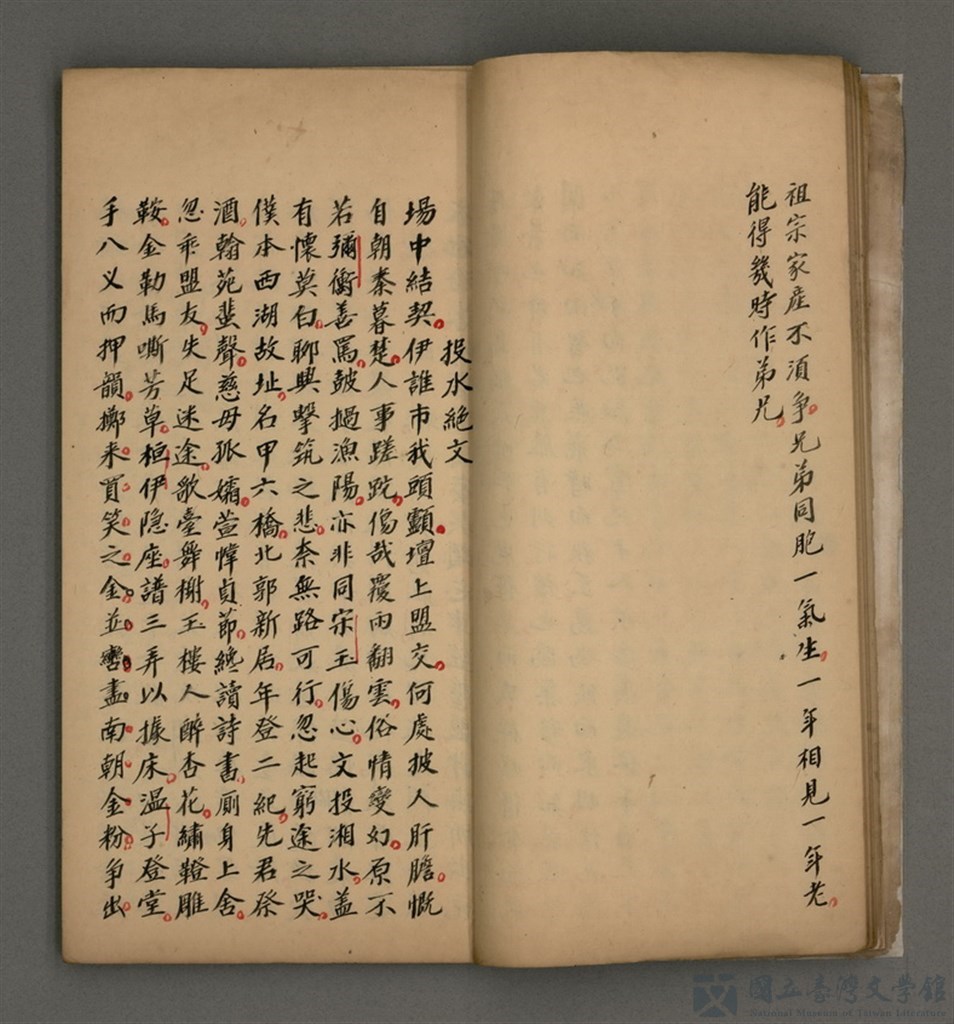 祖宗家産不須争兄弟同胞一氣生一年相見一年老
能得幾時作弟兄
投水絶文
場中結契伊誰市我頭顱壇上盟交何處披人肝膽慨
自朝秦暮楚人事蹉跎傷哉覆雨翻雲俗情變幻原不
若彌衡善罵鼓撾漁陽亦非同宋玉傷心文投湘水盖
有懷莫白聊興擊筑之悲奈無路可行忽起窮途之哭
僕本西湖故址名甲六橋北郭新居年登二紀先君祭
酒翰苑蜚聲慈母孤孀萱幃貞節纔讀詩書厠身上舍
忽乖盟友失足迷途歌臺舞榭玉樓人醉杏花繡鞯雕
鞍金勒馬嘶芳草桓伊隐座譜三弄以據床温子登堂
手八义而押韻擲来買笑之金並盡南朝金粉争出
國立臺灣文学館
National Museum of Taiwan Literature